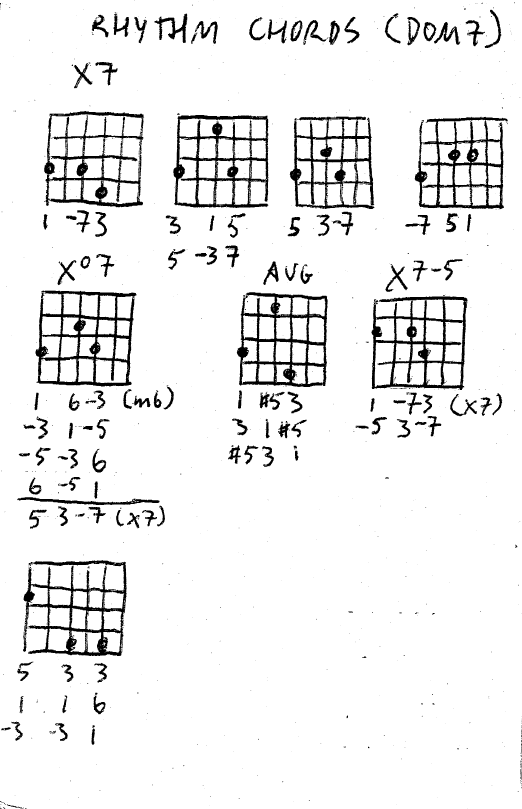 RHYTHM CHORDS (DOM7)
X7
1 -7 3
3 1 5
5 3 -7
-7 5 1
5 -3 7
X°7
AUG
X7-5
1 6 -3 (m6)
1 #5 3
1 -7 3 (X7)
-3 1 -5
3 1 #5
-5 3 -7
-5 -3 6
#5 3 1
6 -5 1
5 3 -7 (X7)
5 3 3
1 1 6
-3 -3 1